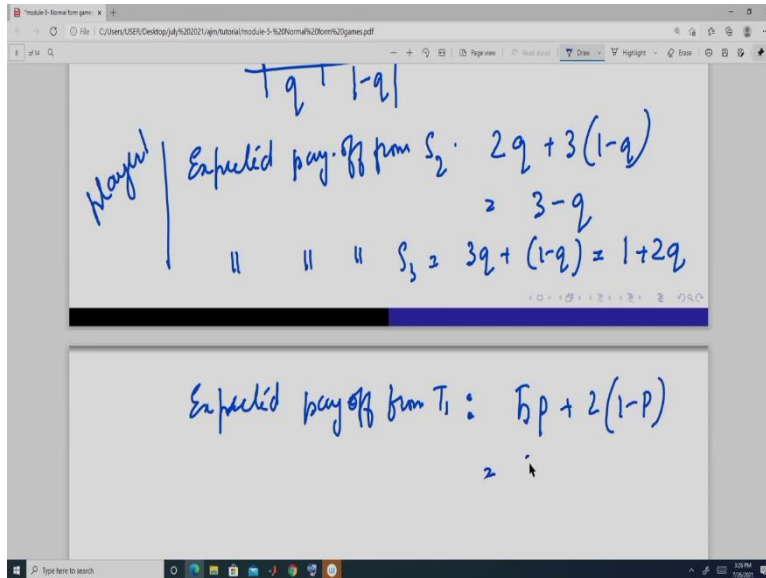 *module-5- Normal form game: x +
File | C:/Users/USER/Desktop/july%202021/ajm/tutorial/module-5-%20Normal%20form%20games.pdf
8 of 14 Page view Read aloud Draw Highlight Erase
q 1-q
player 1
Expected pay-off from S2 . 2q + 3(1-q)
= 3-q
" " " S3 = 3q + (1-q) = 1+2q
Expected pay off from T1 : 5p + 2(1-p)
=
Type here to search
3:26 PM
7/26/2021